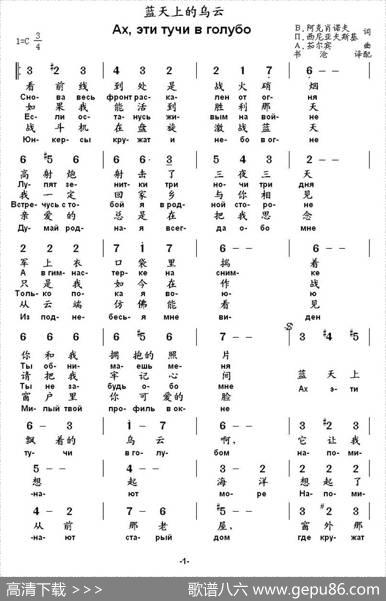 蓝天上的乌云
Ах, эти тучи в голубо
1=C 3/4
В. 阿克肖诺夫 词
П. 西尼亚夫斯基
А. 茹尔宾 曲
书 沧 译配
3 #2 3 4 3 2 5 1 7 6 - -
看 前 线 到 处 是 战 火 硝 烟
Сно- ва весь фронт рас- ка- лен от ог- ня
如 果 我 能 活 到 胜 利 那 天
Ес- ли ос- та- нусь жи- вым на вой- не
战 斗 机 在 盘 旋 激 战 蓝 天
Юн- кер- сы кру- жат и не- бо в ог- не
6 #5 6 6 6· 3 5 4 3 2 - -
高 射 炮 射 击 了 三 夜 三 天
Лу- пят зе- нит- ки три но- чи три дня
我 一 定 回 家 乡 与 你 相 见
Встре- чусь с то- бой я в род- ной сто- ро- не
亲 爱 的 总 是 在 把 我 思 念
Ду- май род- на- я всег- да о- бо мне
2 2 2 7 1 7 6 - - 6 - -
军 上 衣 口 袋 里 揣 着
А в гим- нас- тер- ке на сним- ке
只 是 我 如 今 在 作 战
Толь- ко по- ка я во- ю- ю
从 云 端 仿 佛 能 看 见
Из под- не- бесь- я мне ви- ден
6 6 6 6 #5 6 7 - - 3 #4 #5
你 和 我 拥 抱 的 照 片
Ты об- ни- ма- ешь ме- ня
请 把 我 牢 记 心 间 蓝 天 上
Ты не за- будь о- бо мне Ах э- ти
窗 户 里 你 可 爱 的 脸
Ми- лый твой про- филь в ок- не
6 - 3 1 - 7 6 - - 3 #2 3
飘 着 的 乌 云 啊, 它 让 我
ту- чи в го- лу- бом на- по- ми-
5 - - 4 - - 3 - 2 2 2 2
想 起 海 洋 想 起 了
-на- ют мо- ре На- по- ми-
4 - 2 7 - 6 5 - - 3 #2 3
从 前 那 老 屋, 窗 外 那
-на- ют ста- рый дом где кру- жат
-1-
高清下载 >>> 歌谱八六 www.gepu86.com